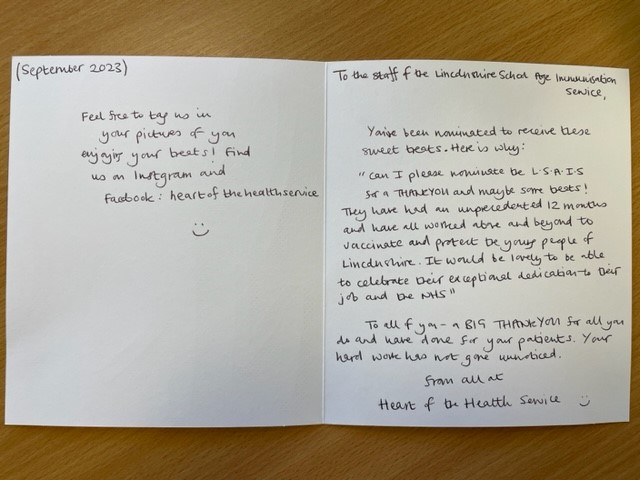 (September 2023)
Feel free to tag us in
your pictures of you
enjoying your treats! Find
us on Instgram and
Facebook: heartofthehealthservice
To the staff of the Lincolnshire School Age Immunisation
Service,
You've been nominated to receive these
sweet treats. Here is why:
"Can I please nominate the L·S·A·I·S
for a THANKYOU and maybe some treats!
They have had an unprecedented 12 months
and have all worked above and beyond to
vaccinate and protect the young people of
Lincolnshire. It would be lovely to be able
to celebrate their exceptional dedication to their
job and the NHS"
To all of you - a BIG THANKYOU for all you
do and have done for your patients. Your
hard work has not gone unnoticed.
from all at
Heart of the Health Service